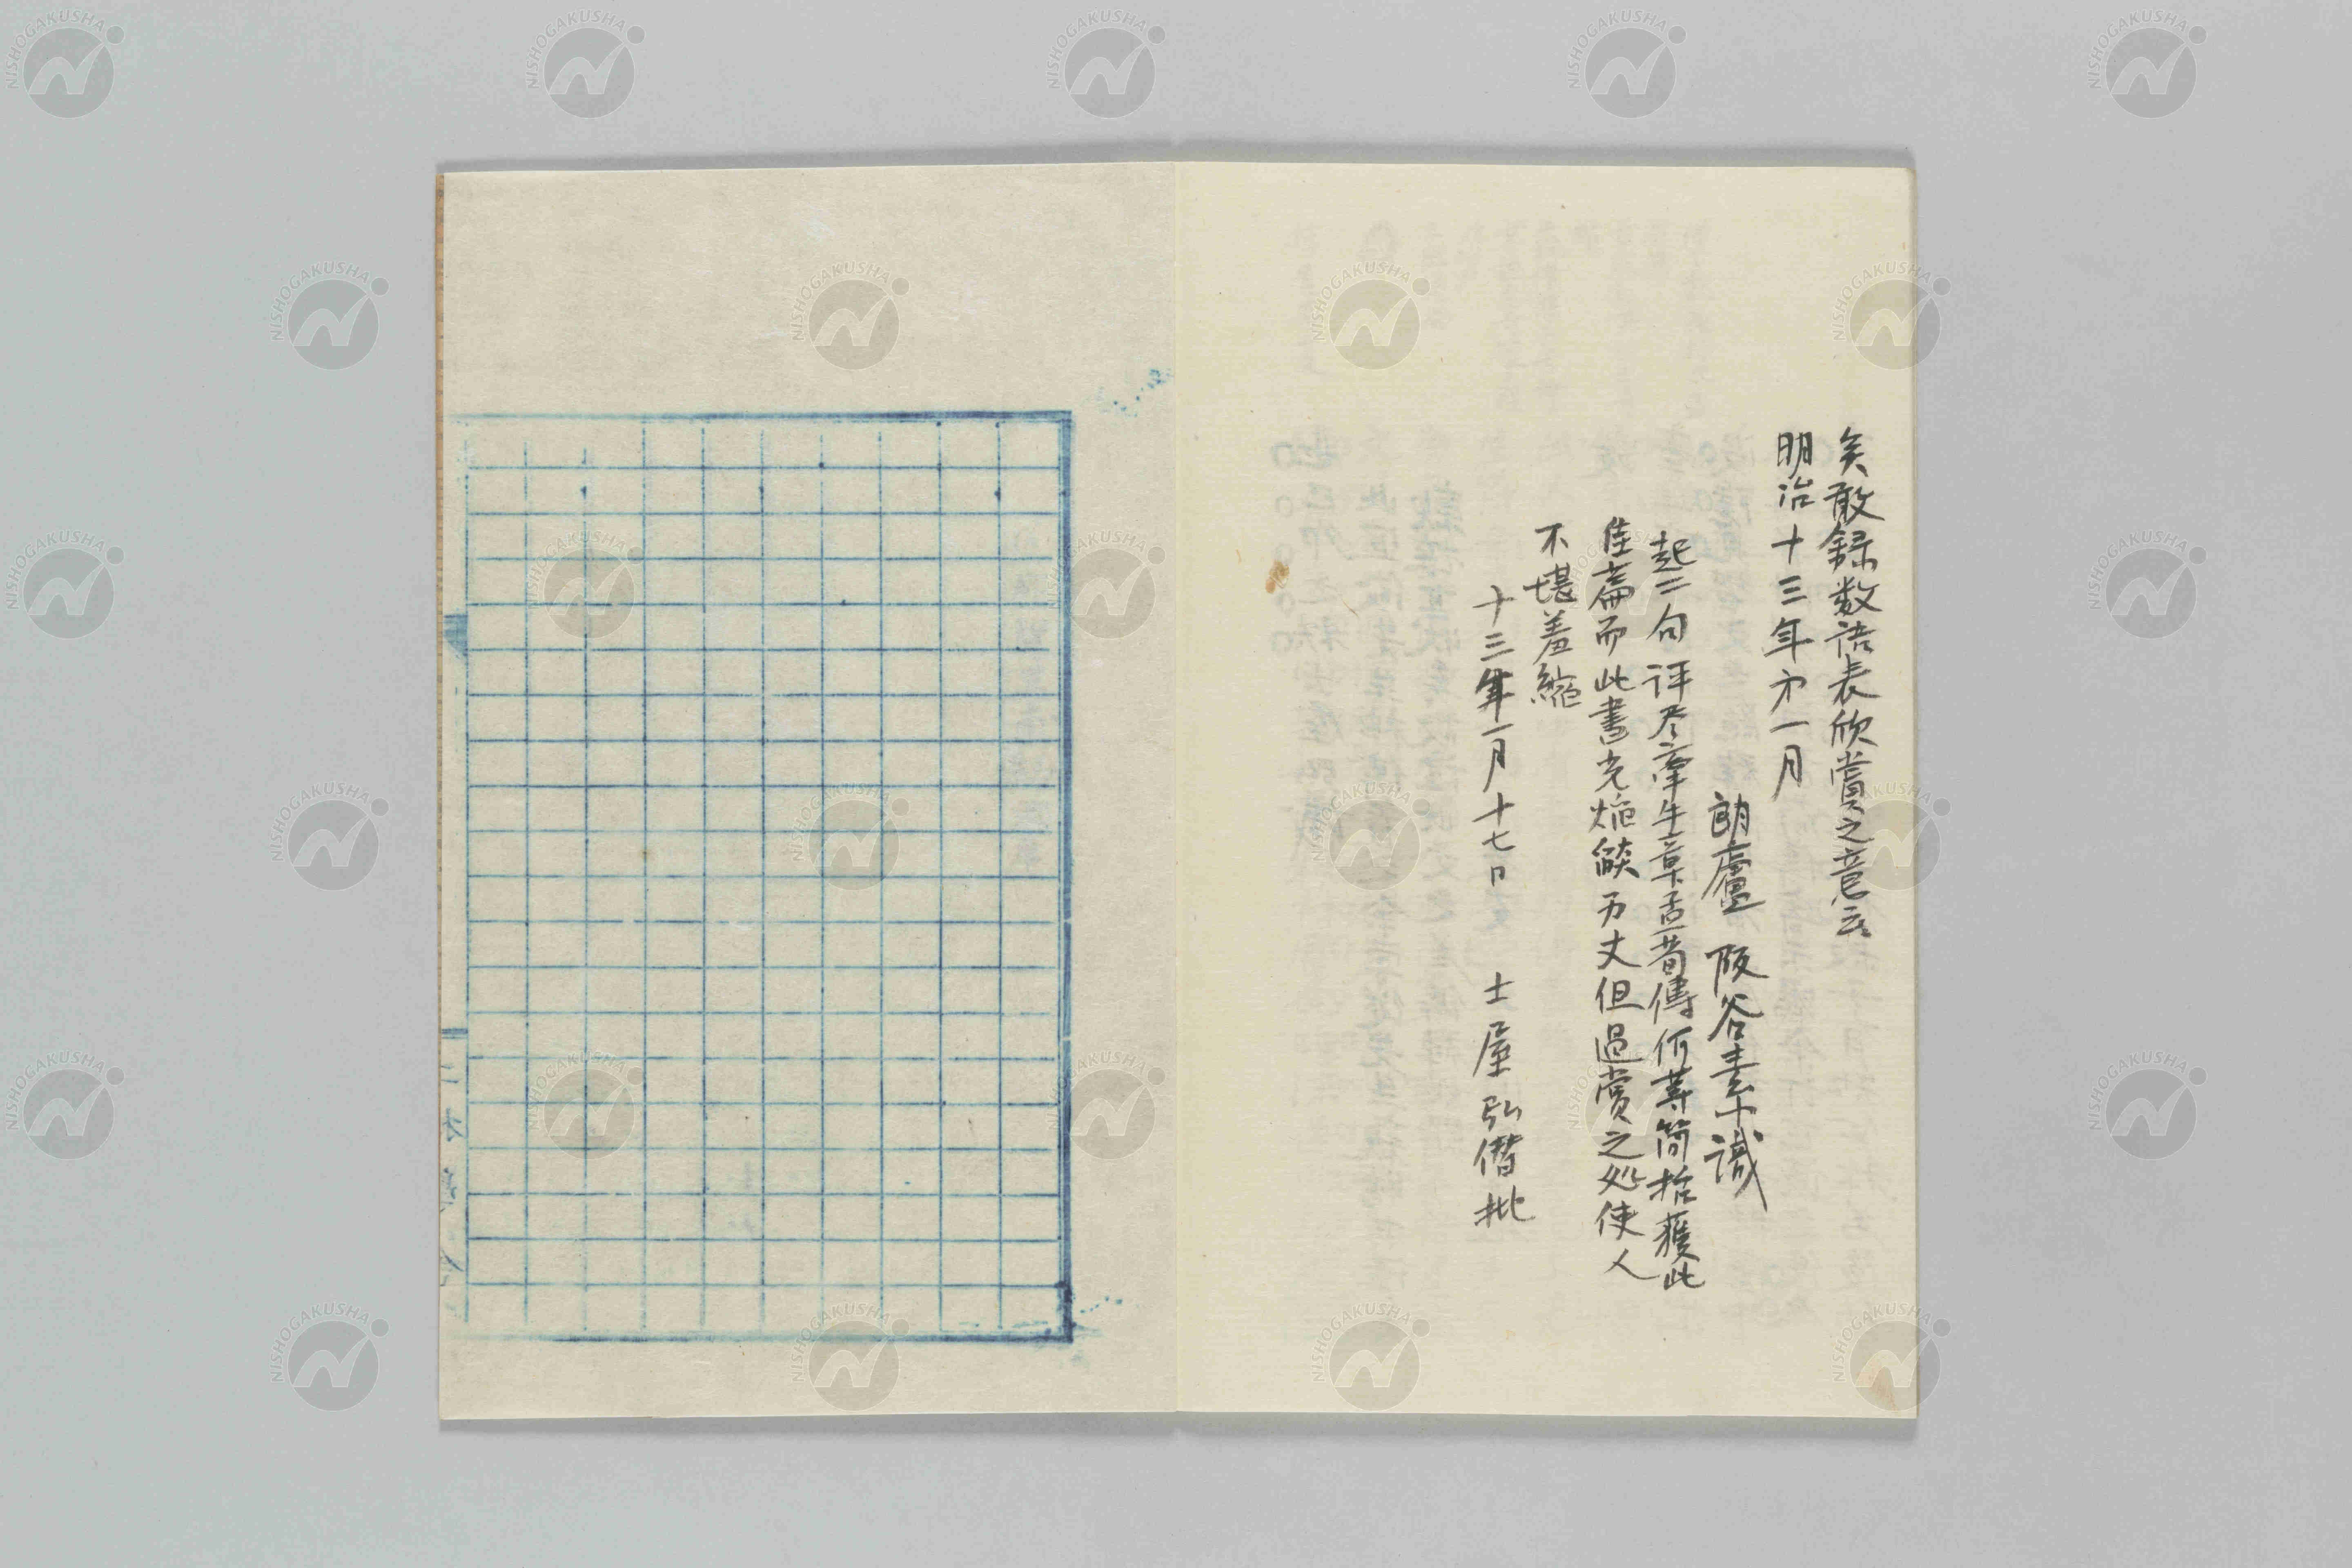 矣敢録数語表欣賞之意云
明治十三年才一月
朗廬 阪谷素識
起二句評尽牽牛章孟荀傳何等簡括獲此
佳篇而此書光焔燄万丈但過賞之処使人
不堪羞縮
十三年一月十七日 士屋弘僭批
NISHOGAKUSHA